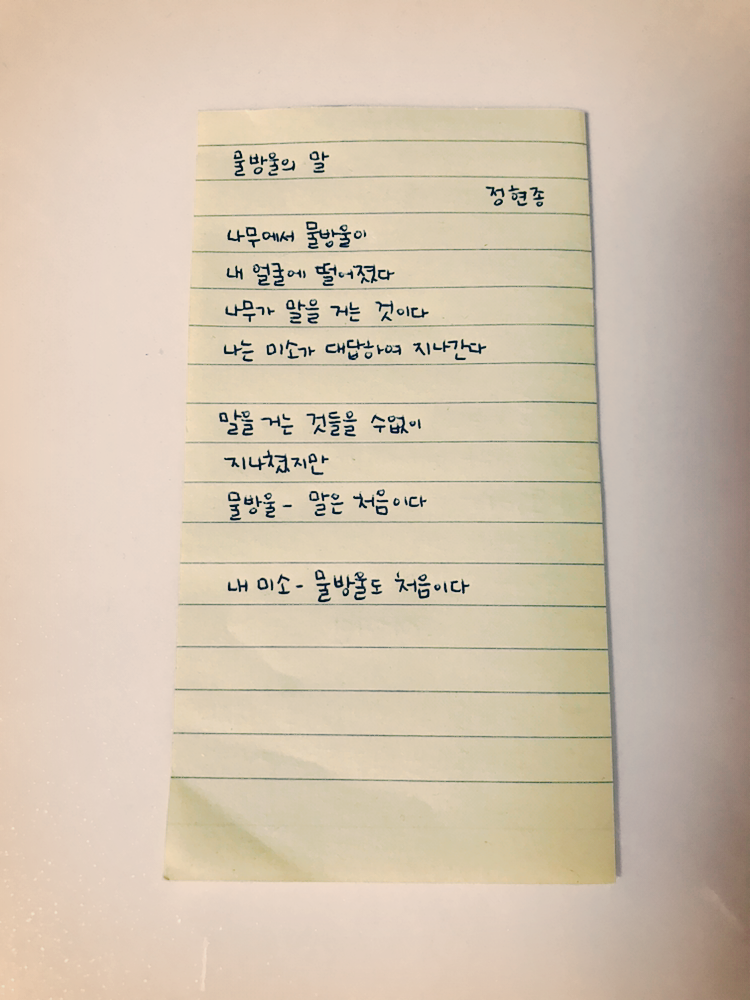 물방울의 말
정현종
나무에서 물방울이
내 얼굴에 떨어졌다
나무가 말을 거는 것이다
나는 미소가 대답하여 지나간다
말을 거는 것들을 수없이
지나쳤지만
물방울 - 말은 처음이다
내 미소 - 물방울도 처음이다